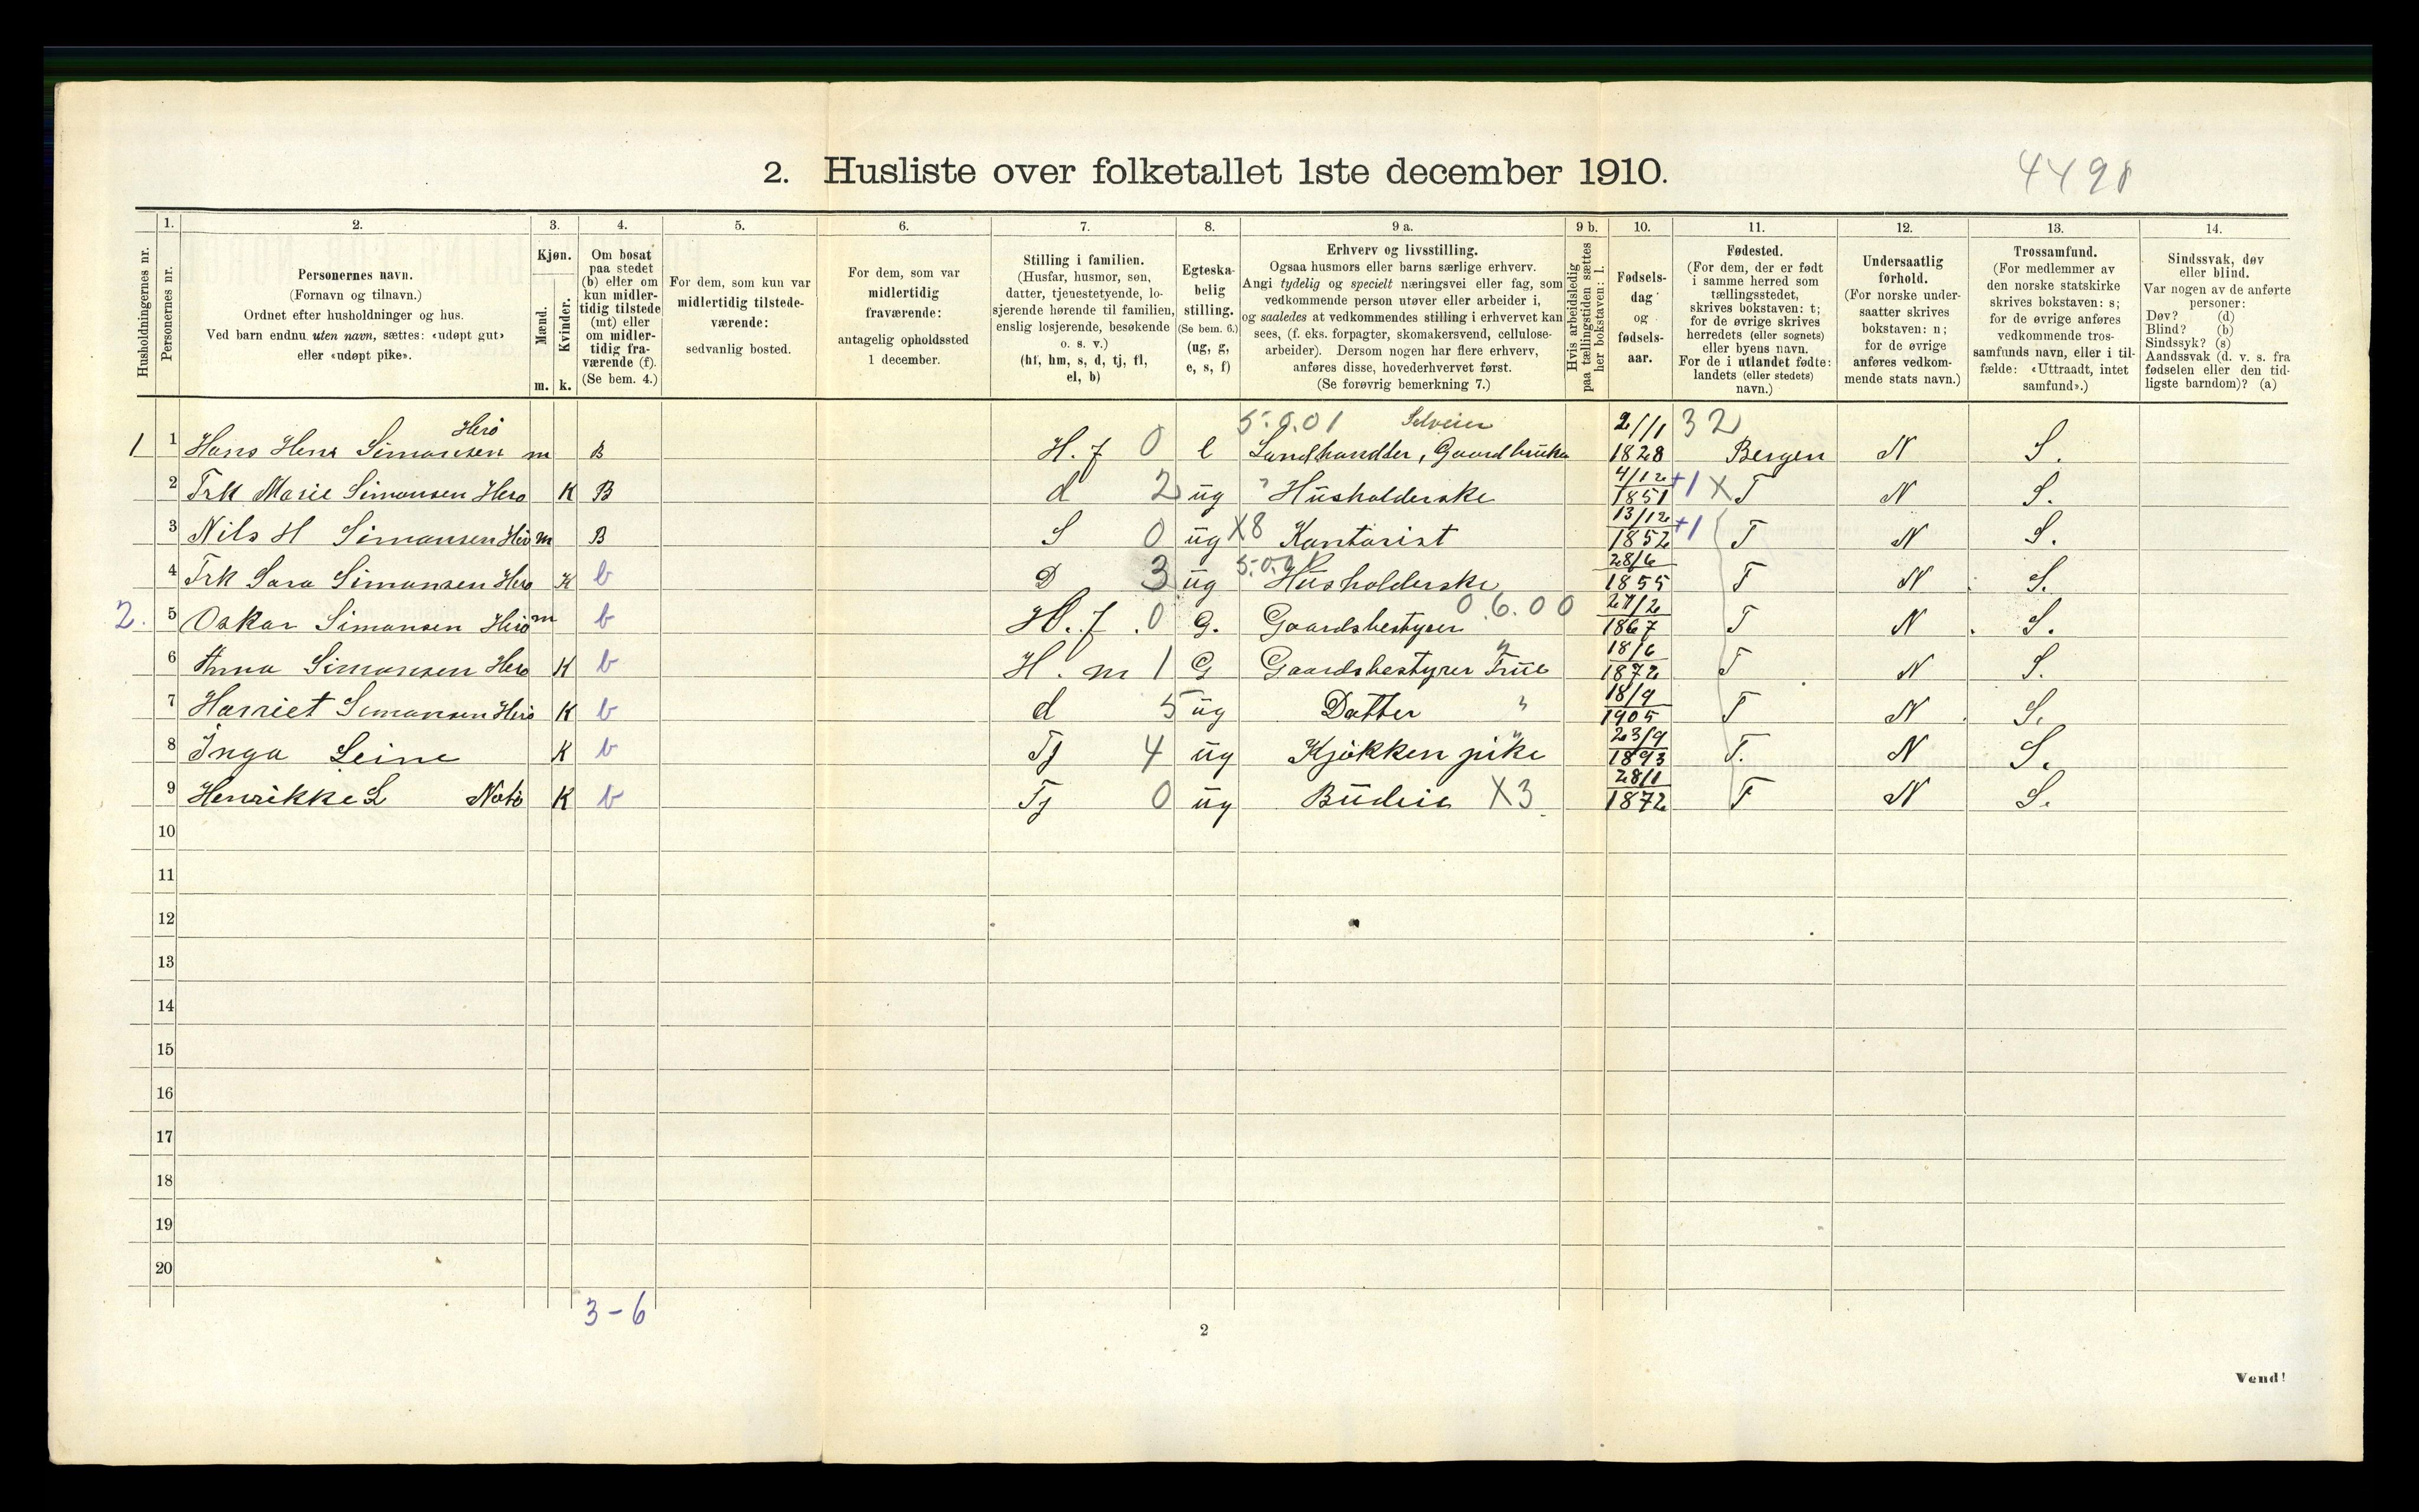 2. Husliste over folketallet 1ste december 1910.
4498
Husholdningernes nr.
1.
Personernes nr.
2.
Personernes navn.
(Fornavn og tilnavn.)
Ordnet efter husholdninger og hus.
Ved barn endnu uten navn, sættes: «udøpt gut»
eller «udøpt pike».
3.
Kjøn.
Mænd.
Kvinder.
m. k.
4.
Om bosat
paa stedet
(b) eller om
kun midler-
tidig tilstede
(mt) eller
om midler-
tidig fra-
værende (f).
(Se bem. 4.)
5.
For dem, som kun var
midlertidig tilstede-
værende:
sedvanlig bosted.
6.
For dem, som var
midlertidig
fraværende:
antagelig opholdssted
1 december.
7.
Stilling i familien.
(Husfar, husmor, søn,
datter, tjenestetyende, lo-
sjerende hørende til familien,
enslig losjerende, besøkende
o. s. v.)
(hf, hm, s, d, tj, fl,
el, b)
8.
Egteska-
belig
stilling.
(Se bem. 6.)
(ug, g,
e, s, f)
9 a.
Erhverv og livsstilling.
Ogsaa husmors eller barns særlige erhverv.
Angi tydelig og specielt næringsvei eller fag, som
vedkommende person utøver eller arbeider i,
og saaledes at vedkommendes stilling i erhvervet kan
sees, (f. eks. forpagter, skomakersvend, cellulose-
arbeider). Dersom nogen har flere erhverv,
anføres disse, hovederhvervet først.
(Se forøvrig bemerkning 7.)
9 b.
Hvis arbeidsledig
paa tællingstiden sættes
her bokstaven: l.
10.
Fødsels-
dag
og
fødsels-
aar.
11.
Fødested.
(For dem, der er født
i samme herred som
tællingsstedet,
skrives bokstaven: t;
for de øvrige skrives
herredets (eller sognets)
eller byens navn.
For de i utlandet fødte:
landets (eller stedets)
navn.)
12.
Undersaatlig
forhold.
(For norske under-
saatter skrives
bokstaven: n;
for de øvrige
anføres vedkom-
mende stats navn.)
13.
Trossamfund.
(For medlemmer av
den norske statskirke
skrives bokstaven: s;
for de øvrige anføres
vedkommende tros-
samfunds navn, eller i til-
fælde: «Uttraadt, intet
samfund».)
14.
Sindssvak, døv
eller blind.
Var nogen av de anførte
personer:
Døv? (d)
Blind? (b)
Sindssyk? (s)
Aandssvak (d. v. s. fra
fødselen eller den tid-
ligste barndom)? (a)
Herö 5.0.01 Selveier 2/1 32
1 1 Hans Henr Simonsen m B H.f 0 e Landhandler, Gaardbruker 1828 Bergen N S.
2 Frk Marie Simonsen Herö K B d 2 ug " Husholderske 4/12 1851 +1 X T N S.
3 Nils H Simonsen Herö m B S 0 ug X8 Kontorist 13/12 1852 +1 T N S.
4 Frk Sara Simonsen Herö K b D 3 ug Husholderske 28/6 1855 T N S.
2. 5 Oskar Simonsen Herö m b H.f. 0 G. Gaardsbestyrer 0.6.00 1867 T N S.
6 Anna Simonsen Herö K b H.m 1 G Gaardsbestyrer Frue " 18/6 1872 T N S.
7 Harriet Simonsen Herö K b d 5 ug Datter " 18/9 1905 T N S.
8 Inga Leine K b Tj 4 ug Kjøkken pike " 23/9 1893 T. N S.
9 Henrikke L Notö K b Tj 0 ug Budeie X3 28/1 1872 T N S.
10
11
12
13
14
15
16
17
18
19
20
3-6
2
Vend!